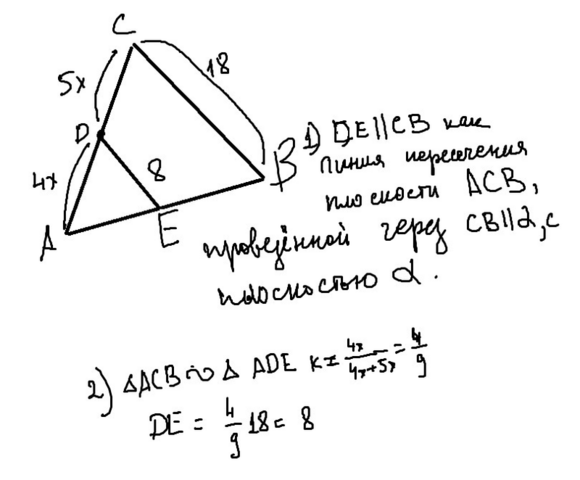 C
5x
18
D
8
4x
B
A
E
1) DE||CB как
линия пересечения
плоскости ACB,
проведённой через CB||α, с
плоскостью α.
2) △ACB ∾ △ ADE K = 4x/(4x+5x) = 4/9
DE = 4/9 18 = 8